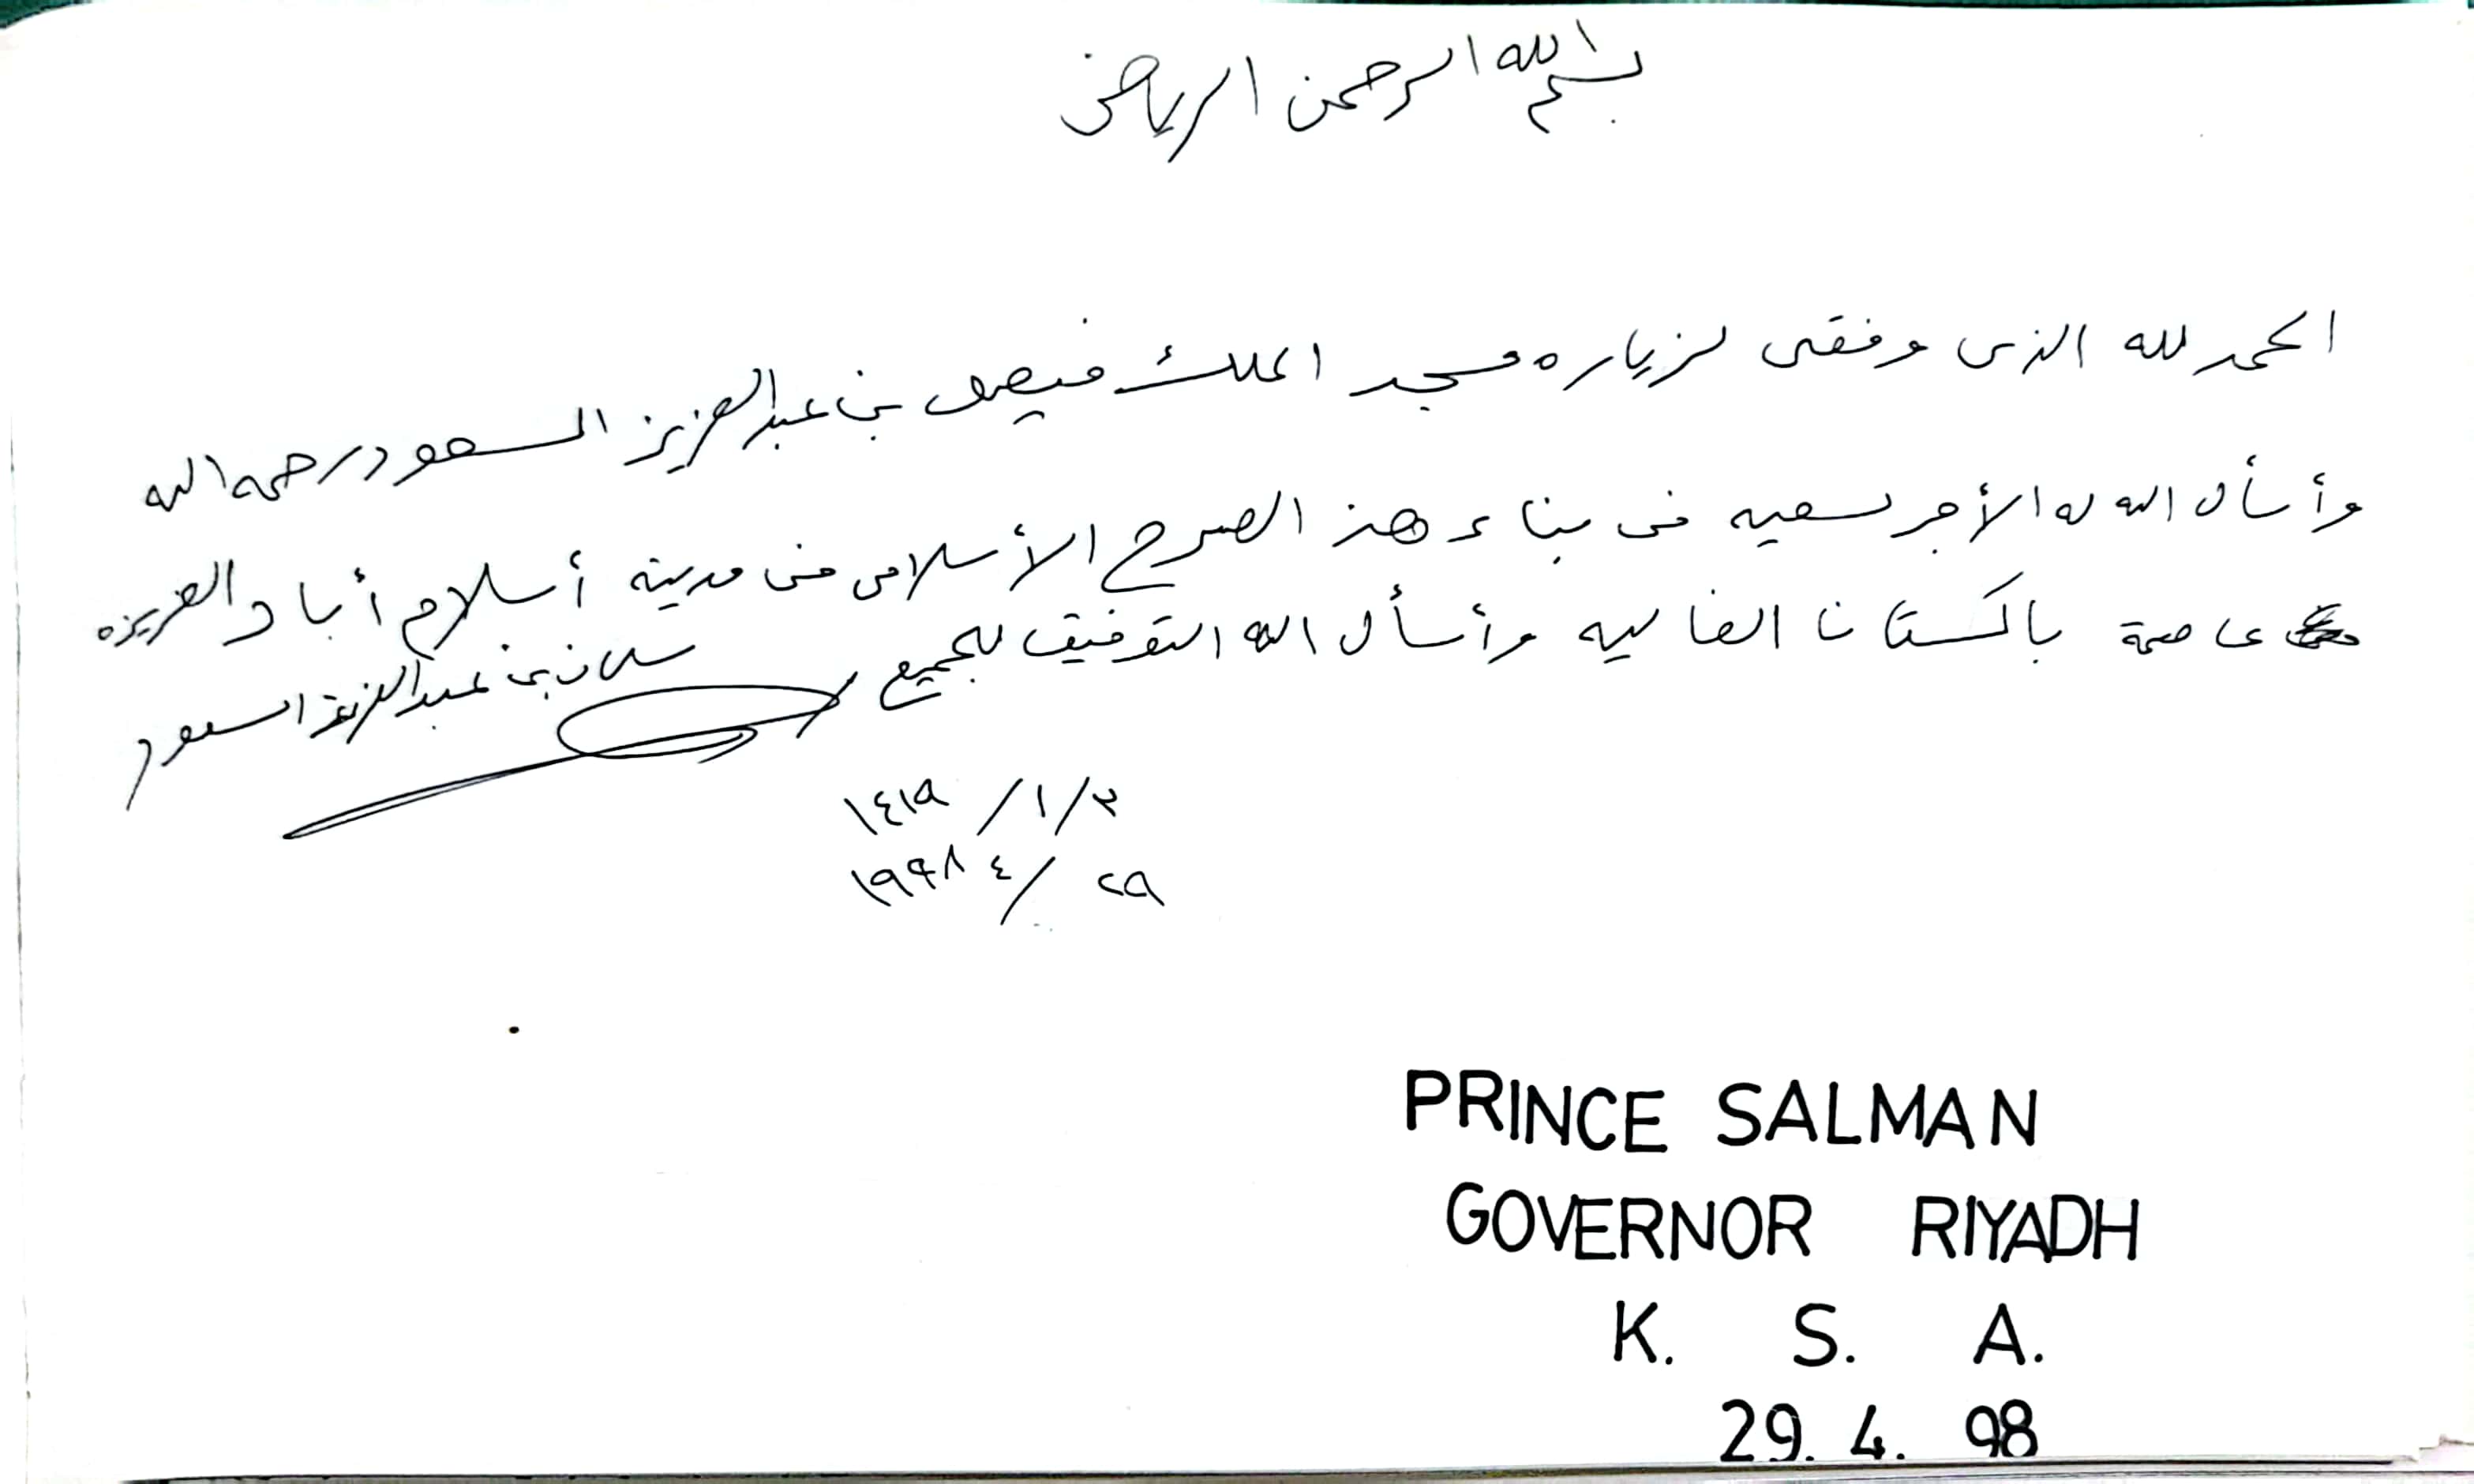 بسم الله الرحمن الرياض
الحمد لله الذى وفقنى لزياره مسجد الملك فيصل بن عبدالعزيز السعود رحمه الله
وأسأل الله له الأجر لسعيه فى بناء هذ الصرح الأسلامى فى مدينة أسلام أباد العزيزه
عاصمة باكستان الغاليه وأسأل الله التوفيق للجميع
سلمان بن عبدالعزيز السعود
٣/١/١٤١٩
٢٩/٤ ١٩٩٨
PRINCE SALMAN
GOVERNOR RIYADH
K. S. A.
29. 4. 98